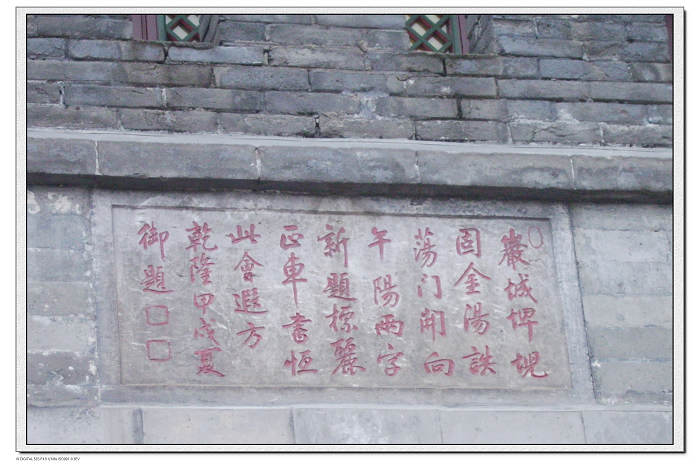 巖城埤堄
固金湯詄
蕩門開向
午陽兩字
新題標麗
正車書恒
此會遐方
乾隆甲戌夏
御題